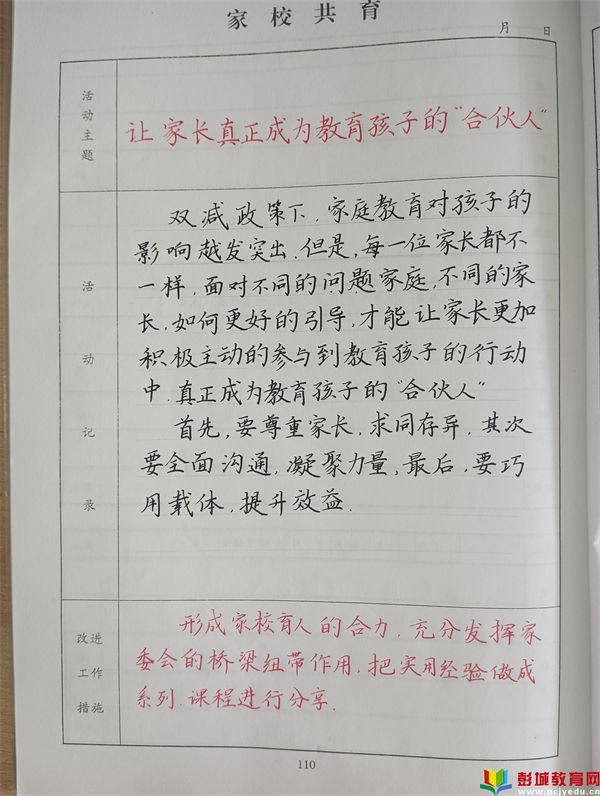 家校共育
月 日
活动主题
让家长真正成为教育孩子的“合伙人”
活动记录
双减政策下，家庭教育对孩子的
影响越发突出.但是，每一位家长都不
一样，面对不同的问题家庭，不同的家
长，如何更好的引导，才能让家长更加
积极主动的参与到教育孩子的行动
中.真正成为教育孩子的“合伙人”
首先，要尊重家长，求同存异，其次
要全面沟通，凝聚力量，最后，要巧
用载体，提升效益.
改进
工作
措施
形成家校育人的合力.充分发挥家
委会的桥梁纽带作用.把实用经验做成
系列.课程进行分享.
110
彭城教育网
www.pcjyedu.cn